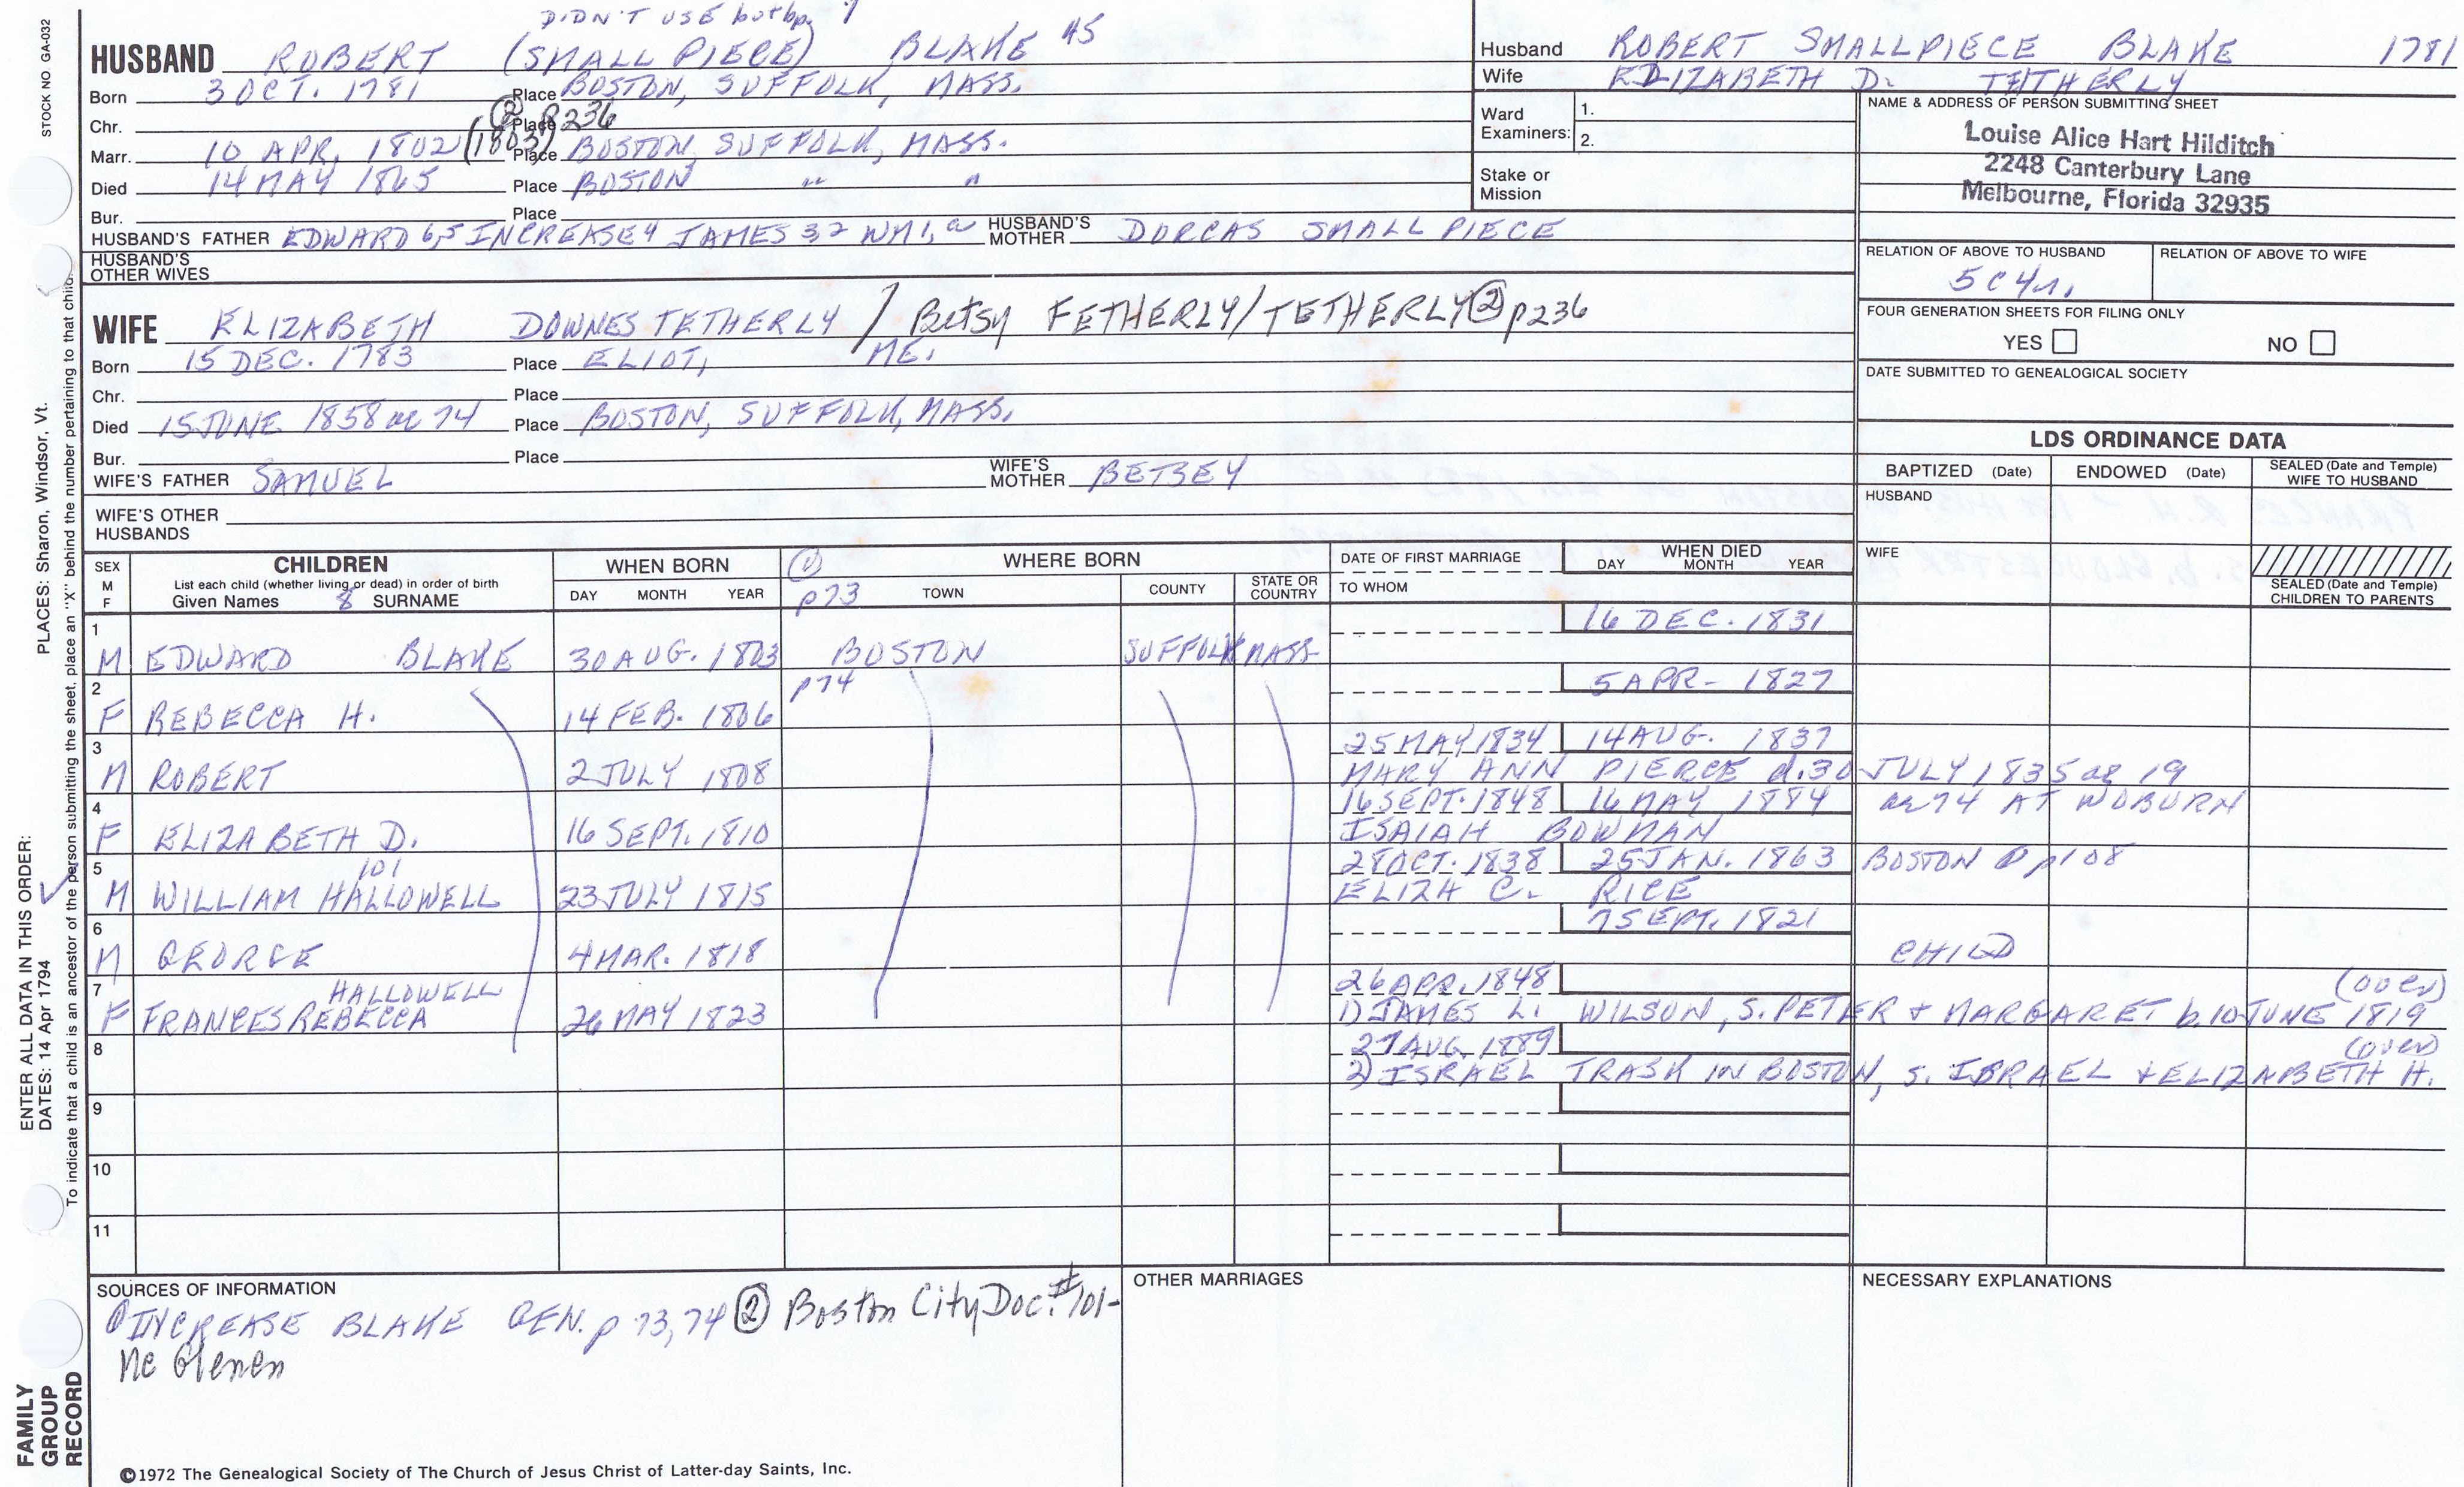 DIDN'T USE but bp.
HUSBAND ROBERT (SMALL PIECE) BLAKE 45
Born 3 OCT. 1781 Place BOSTON, SUFFOLK, MASS.
Chr. Place ② p236
Marr. 10 APR, 1802 (1803) Place BOSTON, SUFFOLK, MASS.
Died 14 MAY 1865 Place BOSTON " "
Bur. Place
HUSBAND'S FATHER EDWARD 6,5 INCREASE 4 JAMES 32 WM 1, HUSBAND'S MOTHER DORCAS SMALL PIECE
HUSBAND'S OTHER WIVES
WIFE ELIZABETH DOWNES TETHERLY / Betsy FETHERLY/TETHERLY ② p236
Born 15 DEC. 1783 Place ELIOT, ME.
Chr. Place
Died 15 JUNE 1858 ae 74 Place BOSTON, SUFFOLK, MASS.
Bur. Place
WIFE'S FATHER SAMUEL WIFE'S MOTHER BETSEY
WIFE'S OTHER HUSBANDS
Husband ROBERT SMALLPIECE BLAKE 1781
Wife ELIZABETH D. TETHERLY
Ward Examiners: 1.
2.
Stake or Mission
NAME & ADDRESS OF PERSON SUBMITTING SHEET
Louise Alice Hart Hilditch
2248 Canterbury Lane
Melbourne, Florida 32935
RELATION OF ABOVE TO HUSBAND RELATION OF ABOVE TO WIFE
5C4r.
FOUR GENERATION SHEETS FOR FILING ONLY
YES NO
DATE SUBMITTED TO GENEALOGICAL SOCIETY
LDS ORDINANCE DATA
BAPTIZED (Date) ENDOWED (Date) SEALED (Date and Temple) WIFE TO HUSBAND
HUSBAND
WIFE
SEALED (Date and Temple) CHILDREN TO PARENTS
SEX M F CHILDREN WHEN BORN ① WHERE BORN DATE OF FIRST MARRIAGE WHEN DIED
List each child (whether living or dead) in order of birth
Given Names & SURNAME DAY MONTH YEAR p73 TOWN COUNTY STATE OR COUNTRY TO WHOM DAY MONTH YEAR
1 16 DEC. 1831
M EDWARD BLAKE 30 AUG. 1803 BOSTON SUFFOLK MASS.
2 p74 5 APR- 1827
F REBECCA H. 14 FEB. 1806
3 25 MAY 1834 14 AUG. 1837
M ROBERT 2 JULY 1808 MARY ANN PIERCE d. 30 JULY 1835 ae 19
4 16 SEPT. 1848 16 MAY 1884 ae 74 AT WOBURN
F ELIZABETH D. 16 SEPT. 1810 ISAIAH BOWMAN
5 101 28 OCT. 1838 25 JAN. 1863 BOSTON p108
M WILLIAM HALLOWELL 23 JULY 1815 ELIZA C. RICE
6 7 SEPT. 1821
M GEORGE 4 MAR. 1818 CHILD
7 HALLOWELL 26 APR. 1848 (over)
F FRANCES REBECCA 26 MAY 1823 1) JAMES L. WILSON, S. PETER + MARGARET b. 10 JUNE 1819
8 27 AUG. 1889 (over)
2) ISRAEL TRASK IN BOSTON, S. ISRAEL + ELIZABETH H.
9
10
11
SOURCES OF INFORMATION
① INCREASE BLAKE GEN. p 73,74 ② Boston City Doc. #101-
Mc Glenen
OTHER MARRIAGES
NECESSARY EXPLANATIONS
©1972 The Genealogical Society of The Church of Jesus Christ of Latter-day Saints, Inc.
STOCK NO. GA-032
PLACES: Sharon, Windsor, Vt.
ENTER ALL DATA IN THIS ORDER:
DATES: 14 Apr 1794
To indicate that a child is an ancestor of the person submitting the sheet, place an "X" behind the number pertaining to that child.
FAMILY
GROUP
RECORD